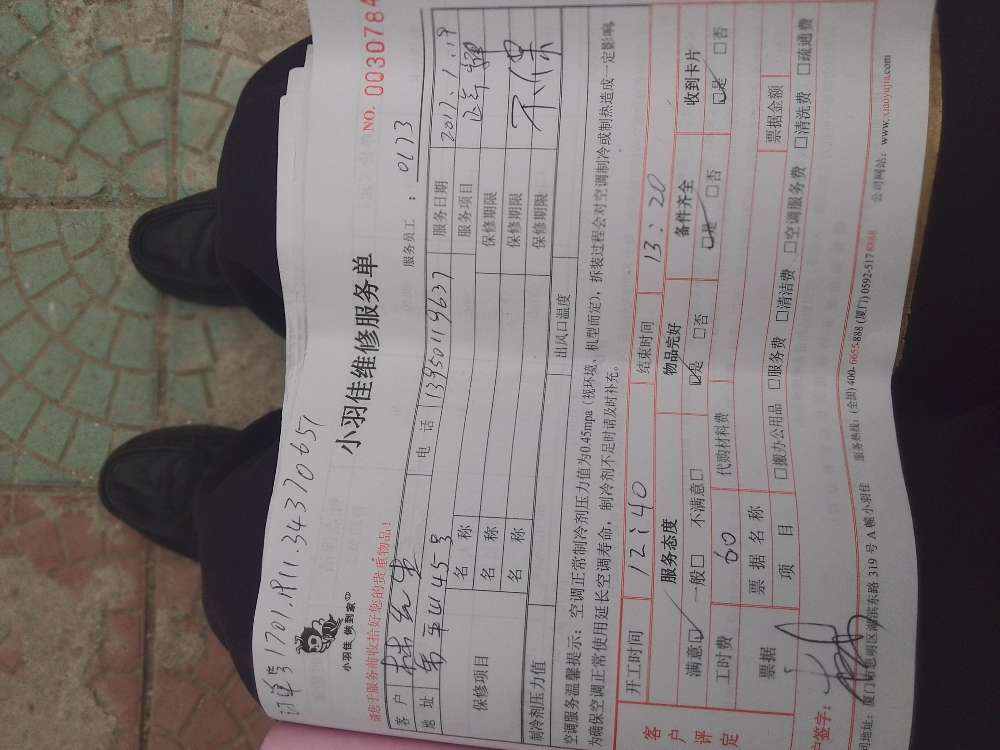 订单号 1701.1911.34370657
小羽佳 做到家
小羽佳维修服务单
NO. 0030784
请您于服务前收拾好您的贵重物品!
服务员工: 0173
客户 电话 13950119637 服务日期 2017.1.19
地址 45号 服务项目
保修项目 名称 保修期限
名称 保修期限 不保
名称 保修期限
制冷剂压力值 出风口温度
空调服务温馨提示:空调正常制冷剂压力值为0.45mpa(视环境、机型而定),拆装过程会对空调制冷或制热造成一定影响,
为确保空调正常使用延长空调寿命,制冷剂不足时请及时补充。
客户评定
开工时间 12:40 结束时间 13:20
服务态度 物品完好 备件齐全 收到卡片
满意☑ 一般□ 不满意□ ☑是 □否 ☑是 □否 ☑是 □否
工时费 60 代购材料费
票据 票据名称 票据金额
项目 □搬办公用品 □服务费 □清洁费 □空调服务费 □清洗费 □疏通费
签字:
司地址: 厦门市思明区湖滨东路 319 号 A 幢小羽佳 服务热线: (全国) 400-6655-888 (厦门) 0592-517 8888 公司网站: www.xiaoyujia.com